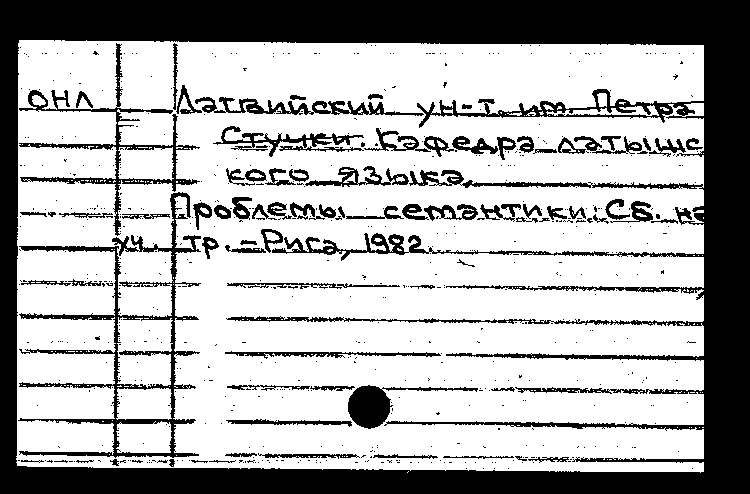 ОНЛ Латвийский ун-т. им. Петра
Стучки. Кафедра латышс
кого языка.
Проблемы семантики: Сб. на
уч. тр. – Рига, 1982.